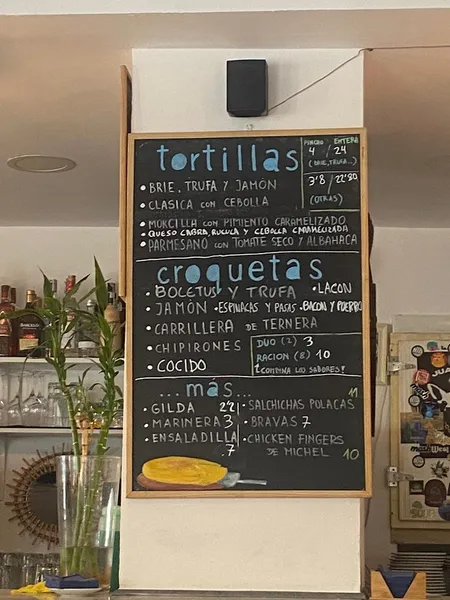 tortillas
PINCHO ENTERA
4 / 24
(BRIE, TRUFA...)
3'8 / 22'80
(OTRAS)
• BRIE, TRUFA Y JAMÓN
• CLASICA CON CEBOLLA
• MORCILLA CON PIMIENTO CARAMELIZADO
• QUESO CABRA, RUCULA Y CEBOLLA CARAMELIZADA
• PARMESANO CON TOMATE SECO Y ALBAHACA
croquetas
• BOLETUS Y TRUFA • LACON
• JAMÓN • ESPINACAS Y PASAS • BACON Y PUERRO
• CARRILLERA DE TERNERA
• CHIPIRONES
• COCIDO
DUO (2) 3
RACION (8) 10
¡COMBINA LOS SABORES!
...más...
• GILDA 2'2
• MARINERA 3
• ENSALADILLA
7
• SALCHICHAS POLACAS 11
• BRAVAS 7
• CHICKEN FINGERS
DE MICHEL 10